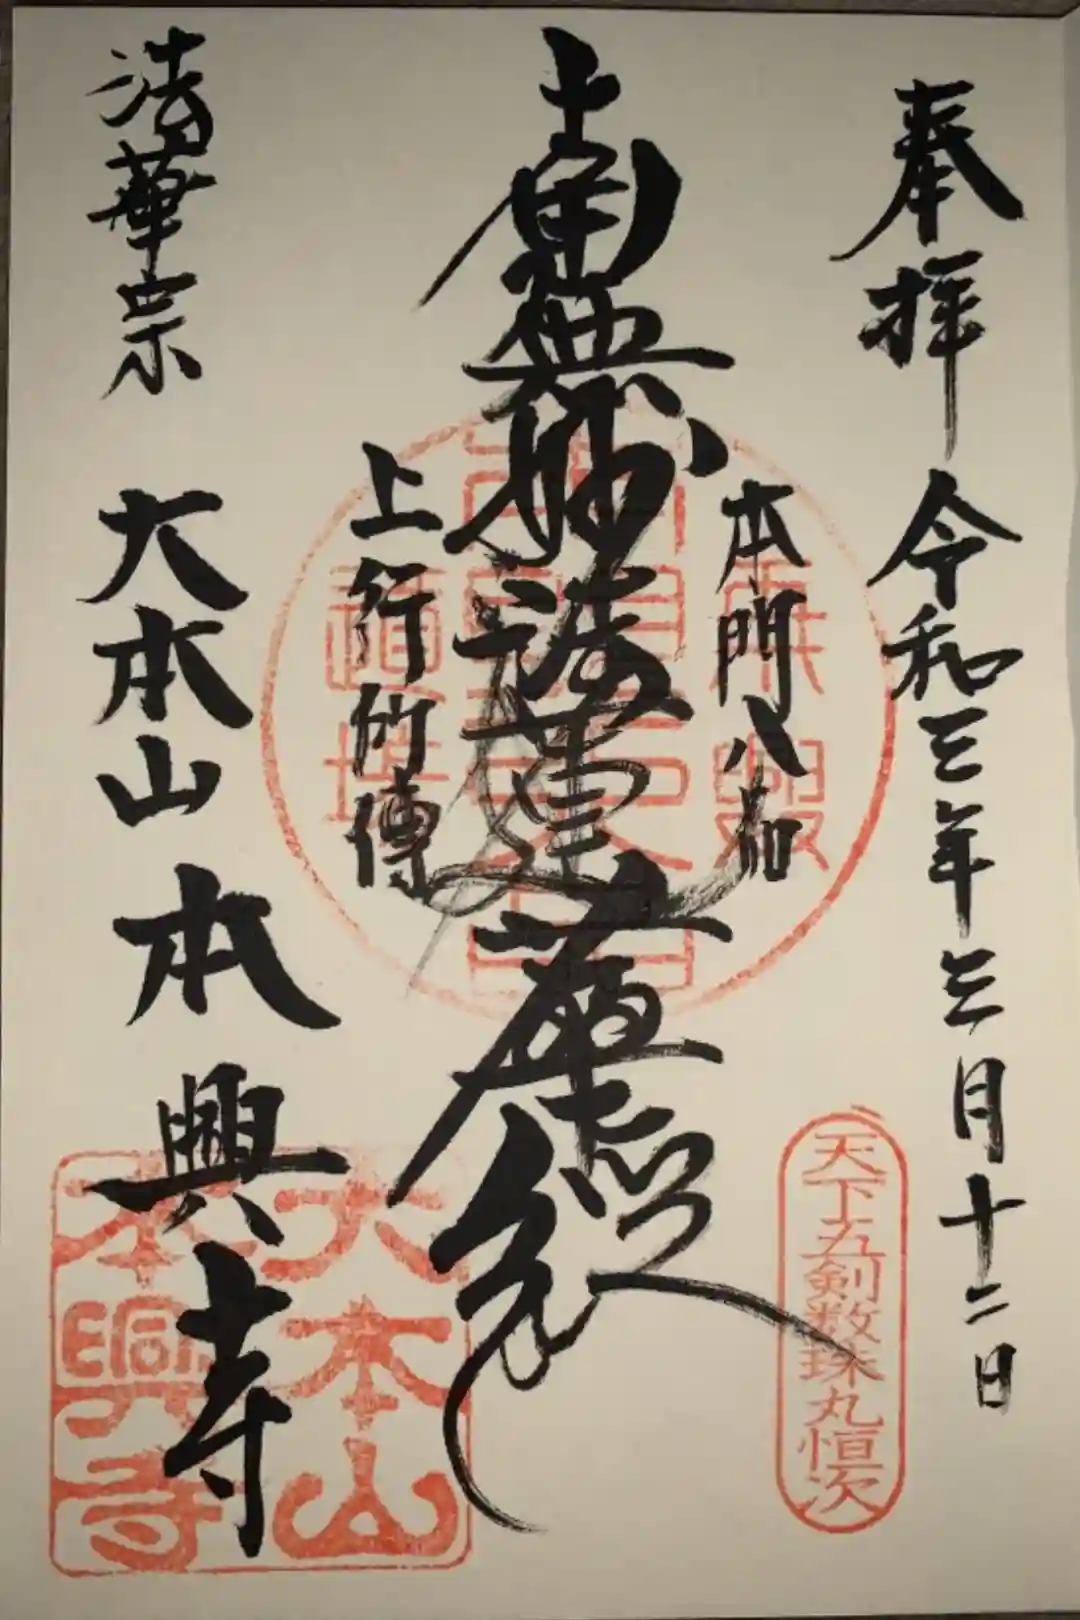 奉拝 令和三年三月十二日
本門八品
南無妙法蓮華経
上行所傳
法華宗 大本山 本興寺
天下五剣数珠丸恒次
大本山
本興寺